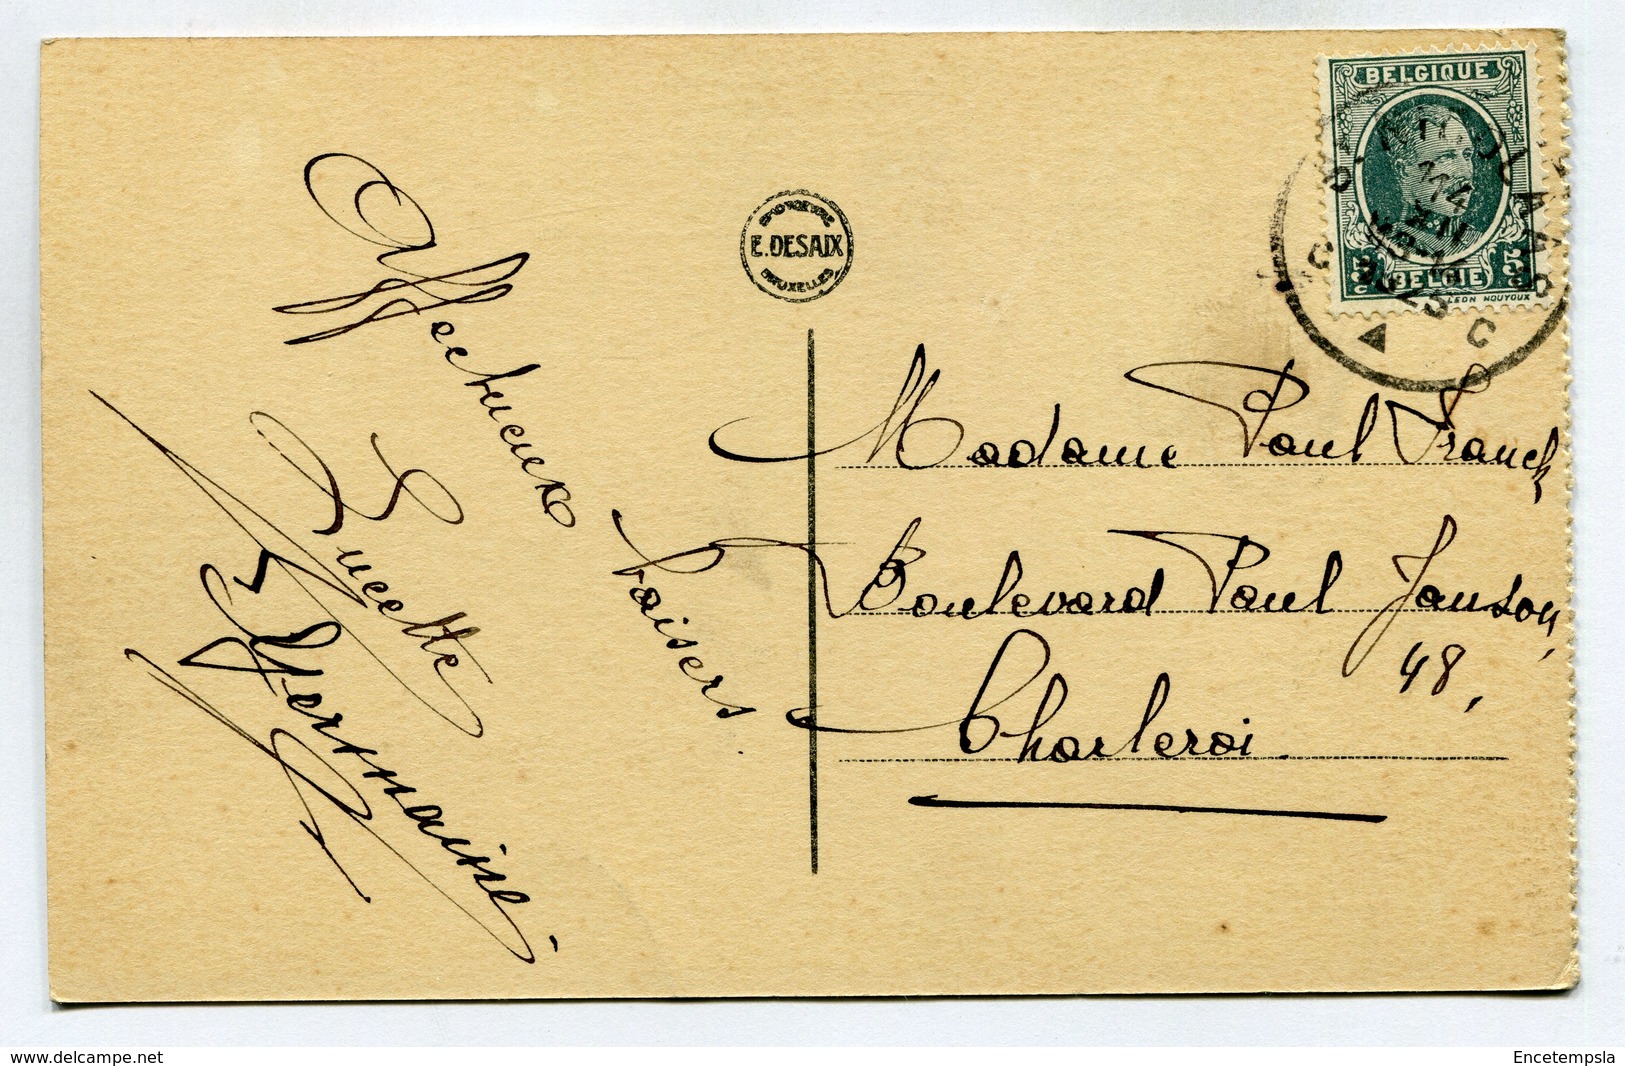 Affectueux baisers.
Lucette
Germaine
E. DESAIX
BRUXELLES
BELGIQUE
5c 5c
BELGIË
LEON NOUYOUX
1925
Madame Paul Franck,
Boulevard Paul Janson,
48,
Charleroi
www.delcampe.net
Encetempsla